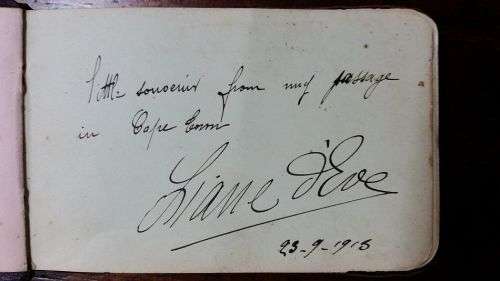 Little souvenir from my passage
in Cape Town
Liane d'Eve
23-9-1913